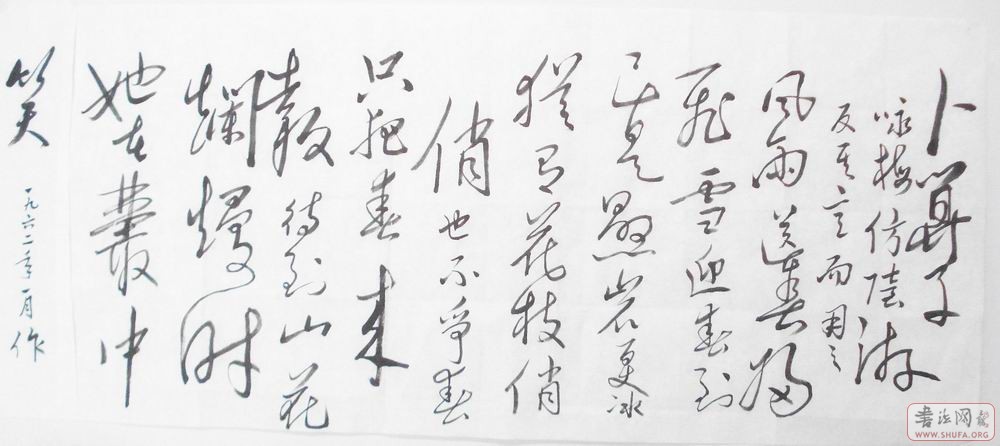 卜算子
咏梅仿陸游
反其意而用之
风雨送春归
飛雪迎春到
已是悬岩百丈冰
猶有花枝俏
俏也不爭春
只把春来
報待到山花
爛熳时
她在叢中
笑
一九六二年一月作
書法网
WWW.SHUFA.ORG